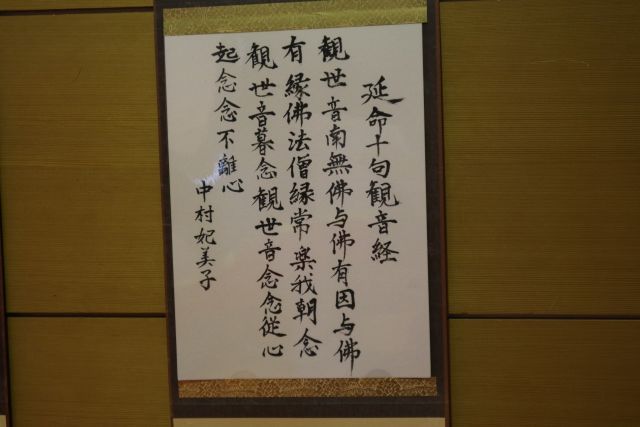 延命十句観音経
観世音南無佛与佛有因与佛
有縁佛法僧縁常楽我朝念
観世音暮念観世音念念従心
起念念不離心
中村妃美子